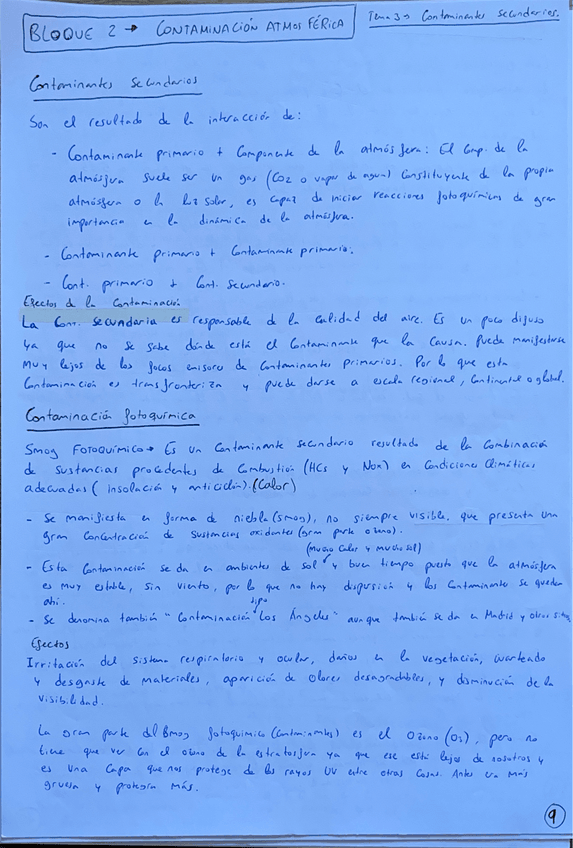 BLOQUE 2 → CONTAMINACIÓN ATMOSFÉRICA
Tema 3 → Contaminantes Secundarios.
Contaminantes Secundarios
Son el resultado de la interacción de:
- Contaminante primario + Componente de la atmósfera: El Comp. de la
atmósfera suele ser un gas (CO2 o vapor de agua) Constituyente de la propia
atmósfera o la luz solar, es capaz de iniciar reacciones fotoquímicas de gran
importancia en la dinámica de la atmósfera.
- Contaminante primario + Contaminante primario.
- Cont. primario + Cont. Secundario.
Efectos de la Contaminación
La Cont. secundaria es responsable de la Calidad del aire. Es un poco difuso
ya que no se sabe dónde está el Contaminante que la Causa. Puede manifestarse
muy lejos de los focos emisores de Contaminantes primarios. Por lo que esta
Contaminación es transfronteriza y puede darse a escala regional, Continental o global.
Contaminación fotoquímica
Smog FOTOQUÍMICO → Es un Contaminante secundario resultado de la Combinación
de Sustancias procedentes de Combustión (HCs y NOx) en Condiciones Climáticas
adecuadas (insolación y anticiclón). (Calor)
- Se manifiesta en forma de niebla (smog), no siempre visible, que presenta una
gran Concentración de Sustancias oxidantes (gran parte ozono).
(Mucho Calor y mucho sol)
- Esta Contaminación se da en ambientes de sol y buen tiempo puesto que la atmósfera
es muy estable, sin viento, por lo que no hay dispersión y los Contaminantes se quedan
ahí.
- Se denomina también "Contaminación tipo Los Ángeles" aunque también se da en Madrid y otros sitios
Efectos
Irritación del sistema respiratorio y ocular, daños en la vegetación, cuarteado
y desgaste de materiales, aparición de olores desagradables, y disminución de la
visibilidad.
La gran parte del Smog fotoquímico (Contaminantes) es el Ozono (O3), pero no
tiene que ver con el ozono de la estratosfera ya que ese está lejos de nosotros y
es una Capa que nos protege de los rayos UV entre otras Cosas. Antes era más
gruesa y protegía más.
9